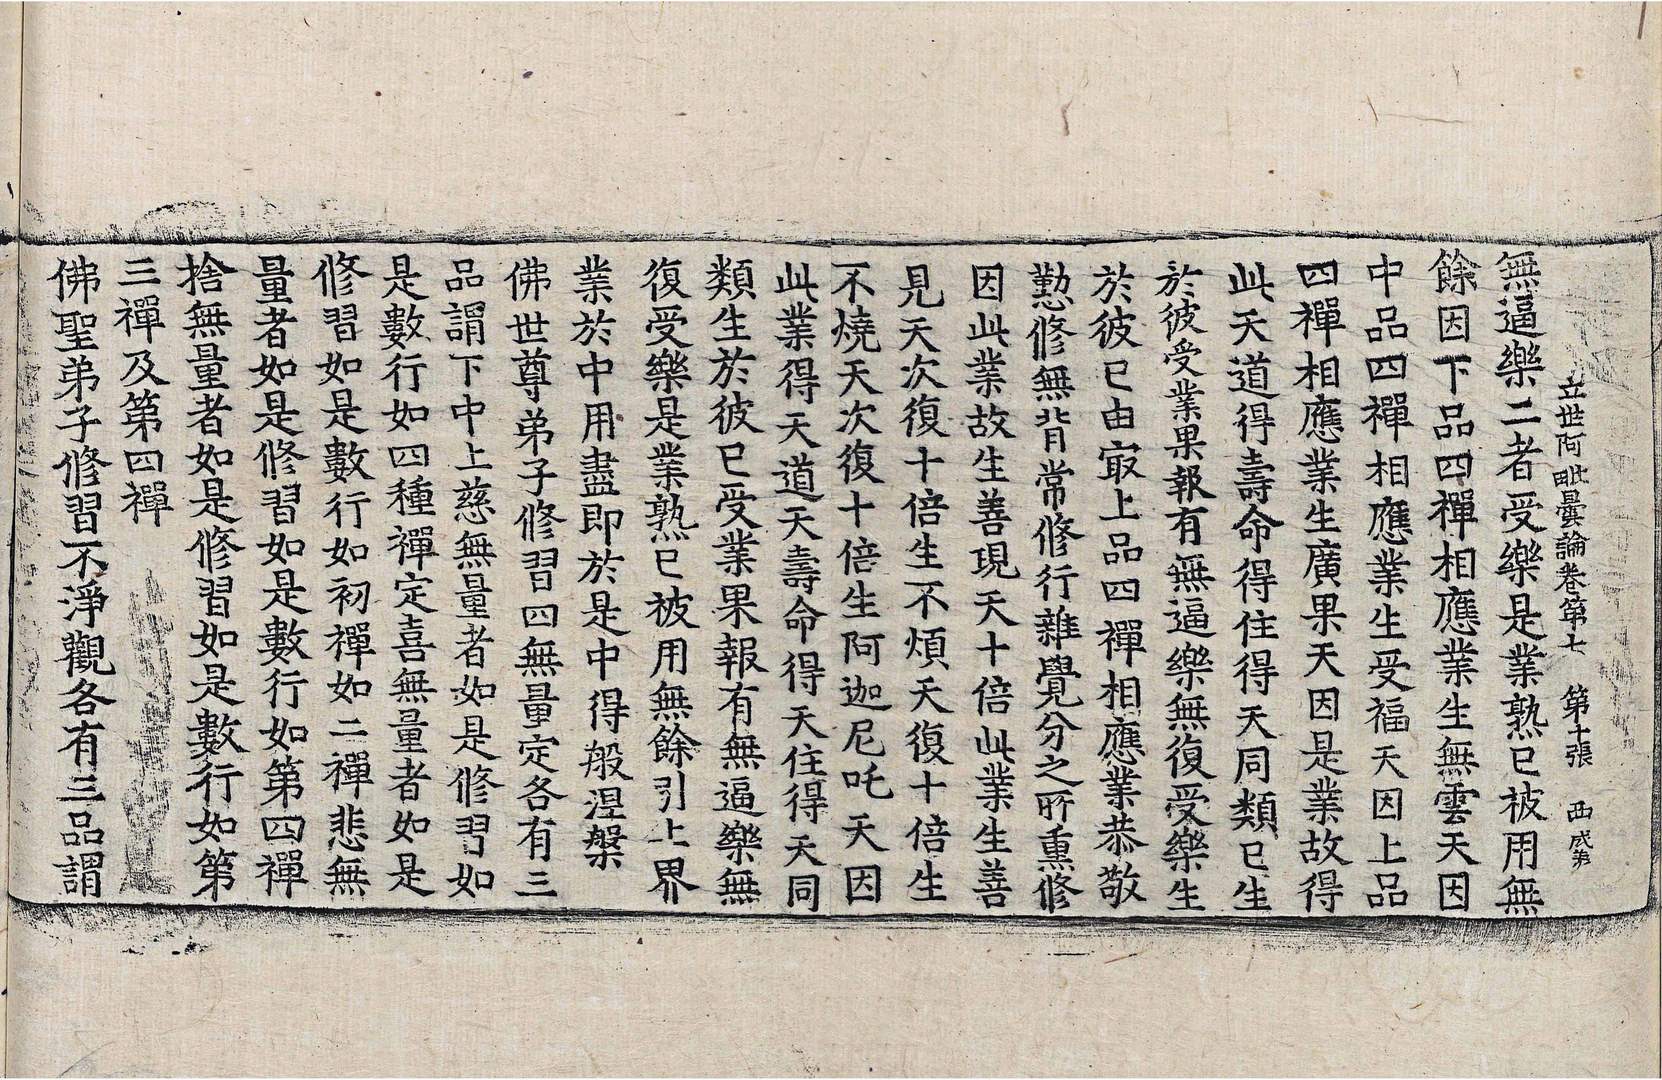 立世阿毗曇論卷第七 第十張 西 成弟
無逼樂二者受樂是業熟已被用無
餘因下品四禪相應業生無雲天因
中品四禪相應業生受福天因上品
四禪相應業生廣果天因是業故得
此天道得壽命得住得天同類已生
於彼受業果報有無逼樂無復受樂生
於彼已由㝡上品四禪相應業恭敬
懃修無背常修行雜覺分之所熏修
因此業故生善現天十倍此業生善
見天次復十倍生不煩天復十倍生
不燒天次復十倍生阿迦尼吒天因
此業得天道天壽命得天住得天同
類生於彼已受業果報有無逼樂無
復受樂是業熟已被用無餘引上界
業於中用盡即於是中得般涅槃
佛世尊弟子修習四無量定各有三
品謂下中上慈無量者如是修習如
是數行如四種禪定喜無量者如是
修習如是數行如初禪如二禪悲無
量者如是修習如是數行如第四禪
捨無量者如是修習如是數行如第
三禪及第四禪
佛聖弟子修習不淨觀各有三品謂